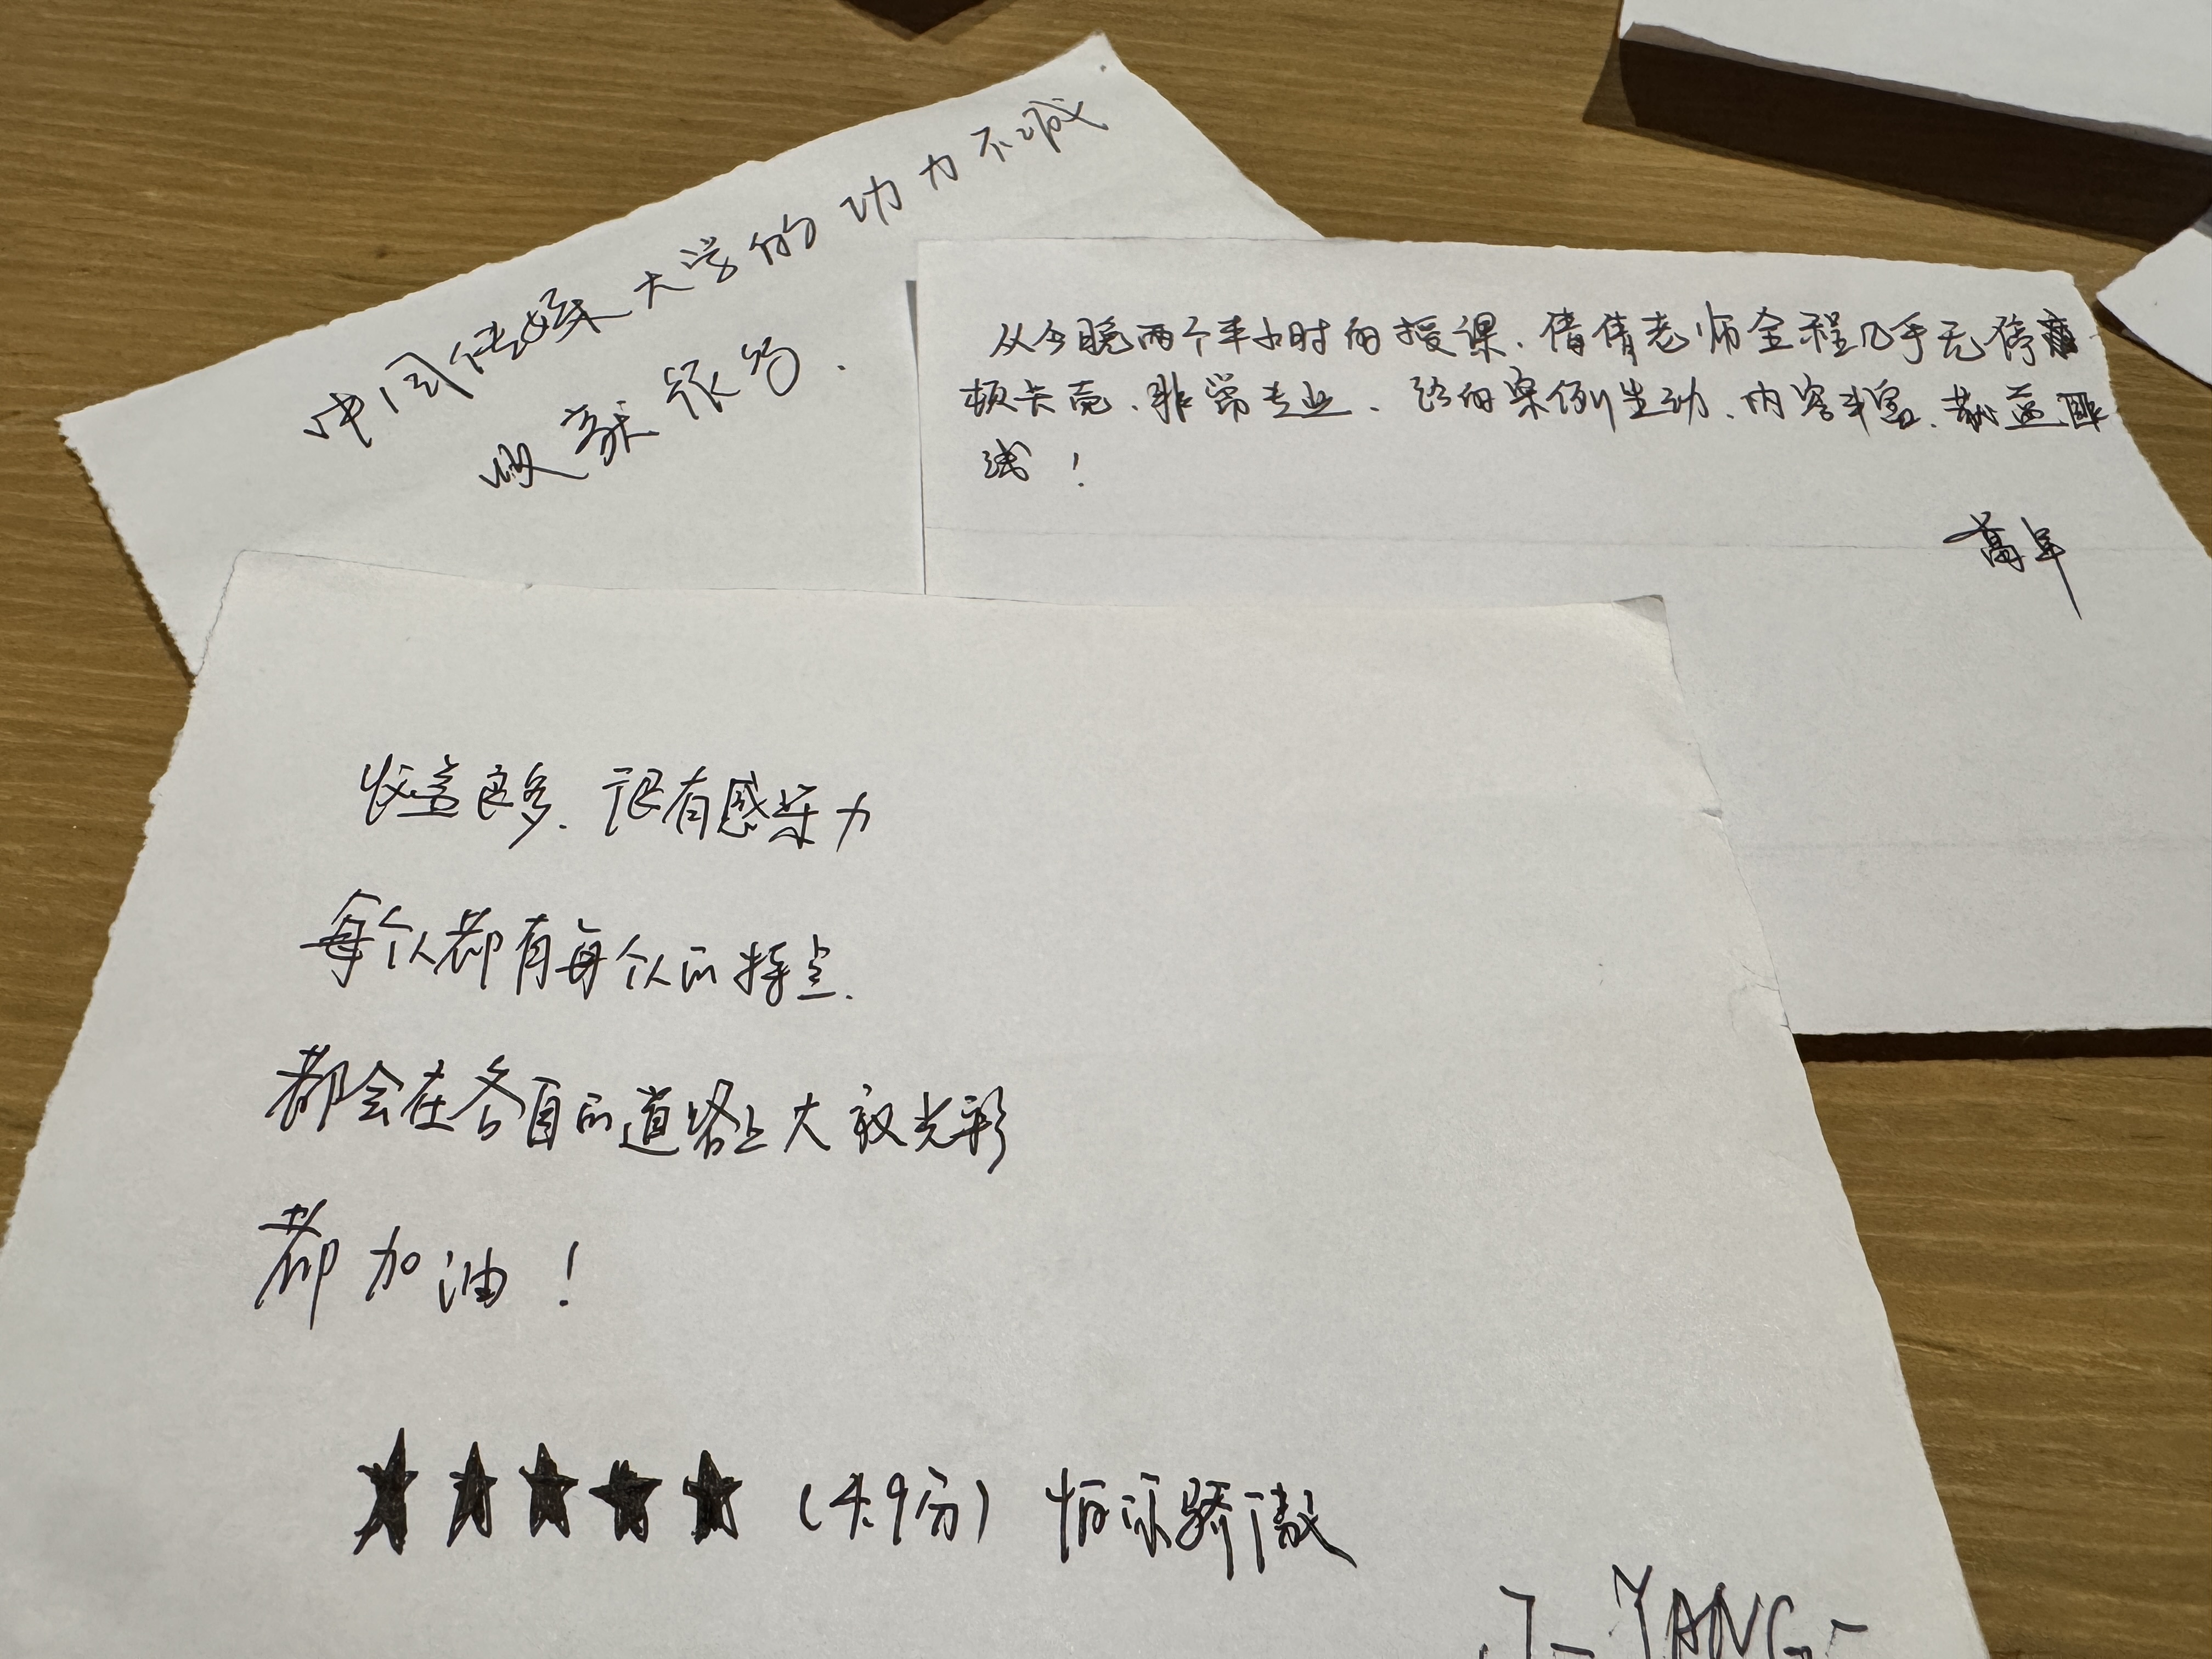 中国传媒大学的功力不减
收获很多.
从今晚两个半小时的授课、倩倩老师全程几乎无停
顿卡壳、非常专业、路的案例生动、内容丰富、获益匪
浅！
收益良多、很有感染力
每个人都有每个人的特点.
都会在各自的道路上大放光彩
都加油！
★★★★★（4.9分）怕你骄傲
J-YANG-